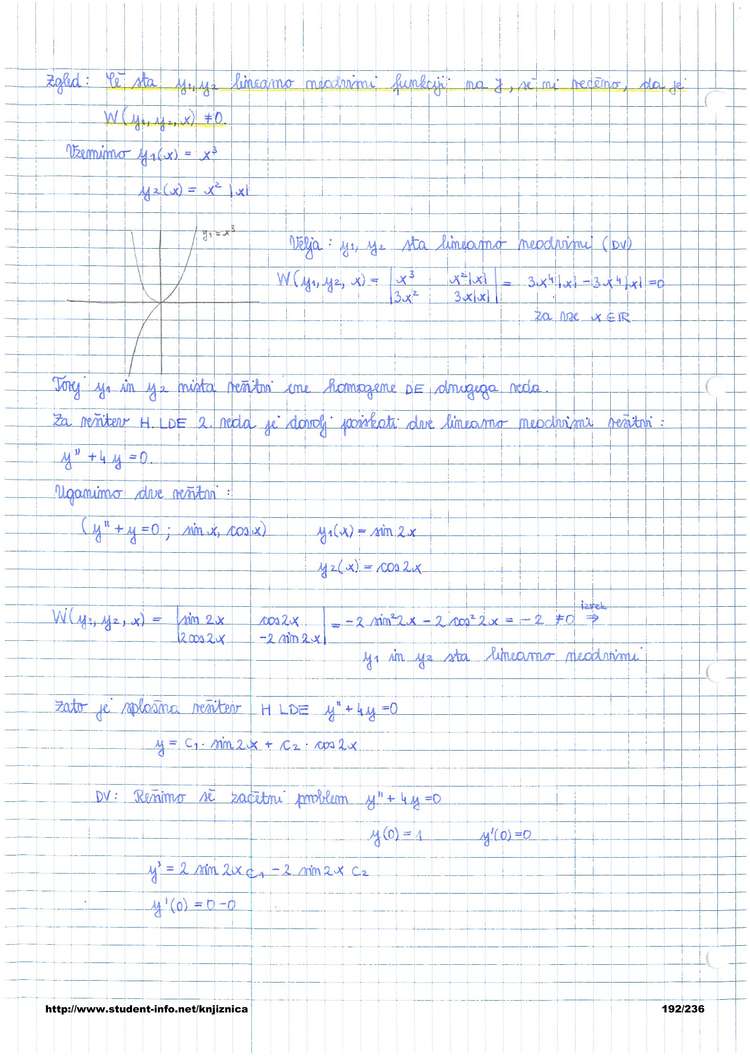 Zgled: Če sta y₁, y₂ linearno neodvisni funkciji na J, še ni rečeno, da je
W(y₁, y₂, x) ≠ 0.
Vzemimo y₁(x) = x³
y₂(x) = x² |x|
y₁ = x³
Velja: y₁, y₂ sta linearno neodvisni (DV)
W(y₁, y₂, x) = | x³ x²|x| | = 3x⁴|x| - 3x⁴|x| = 0
| 3x² 3x|x| |
za vse x ∈ ℝ
Torej y₁ in y₂ nista rešitvi ene homogene DE drugega reda.
Za rešitev H. LDE 2. reda je dovolj poiskati dve linearno neodvisni rešitvi:
y'' + 4y = 0.
Uganimo dve rešitvi:
(y'' + y = 0 ; sin x, cos x) y₁(x) = sin 2x
y₂(x) = cos 2x
izrek
W(y₁, y₂, x) = | sin 2x cos 2x | = -2 sin² 2x - 2 cos² 2x = -2 ≠ 0 ⇒
| 2 cos 2x -2 sin 2x |
y₁ in y₂ sta linearno neodvisni
Zato je splošna rešitev H LDE y'' + 4y = 0
y = C₁ · sin 2x + C₂ · cos 2x
DV: Rešimo še začetni problem y'' + 4y = 0
y(0) = 1 y'(0) = 0
y' = 2 sin 2x C₁ - 2 sin 2x C₂
y'(0) = 0 - 0
http://www.student-info.net/knjiznica 192/236